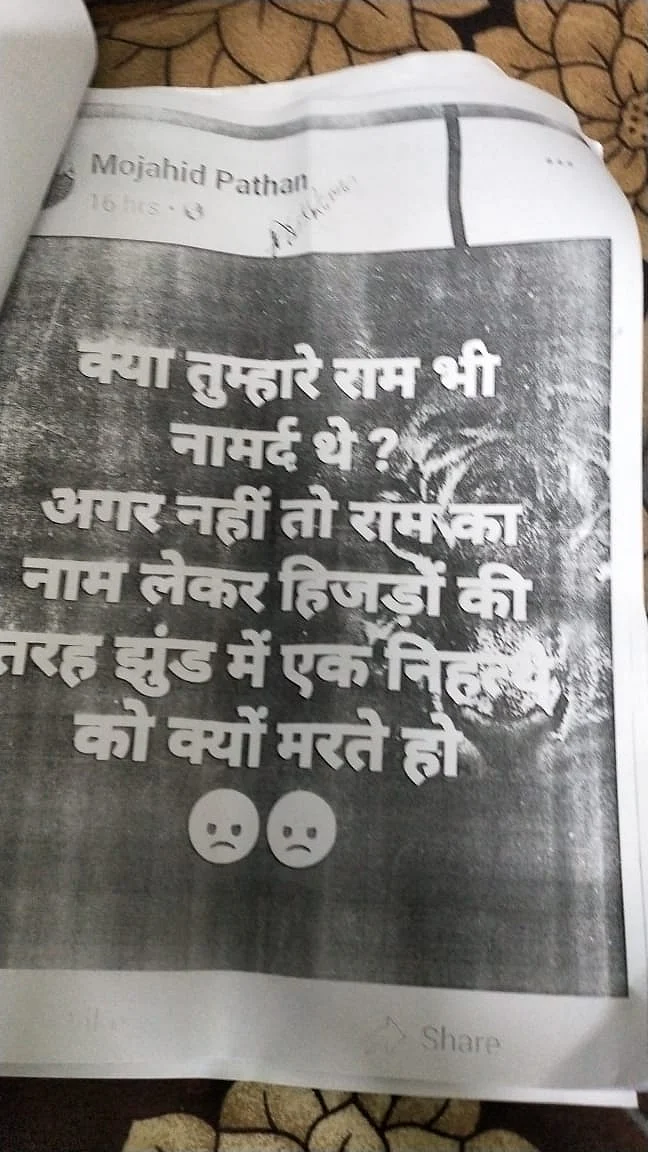 Mojahid Pathan
16 hrs
क्या तुम्हारे राम भी
नामर्द थे ?
अगर नहीं तो राम का
नाम लेकर हिजड़ों की
तरह झुंड में एक निहत्थे
को क्यों मरते हो
Share